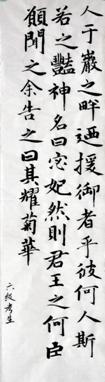 人于巖之畔迺援御者乎彼何人斯
若之豔神名曰宓妃然則君王之何臣
願聞之余告之曰其耀菊華
六級考生